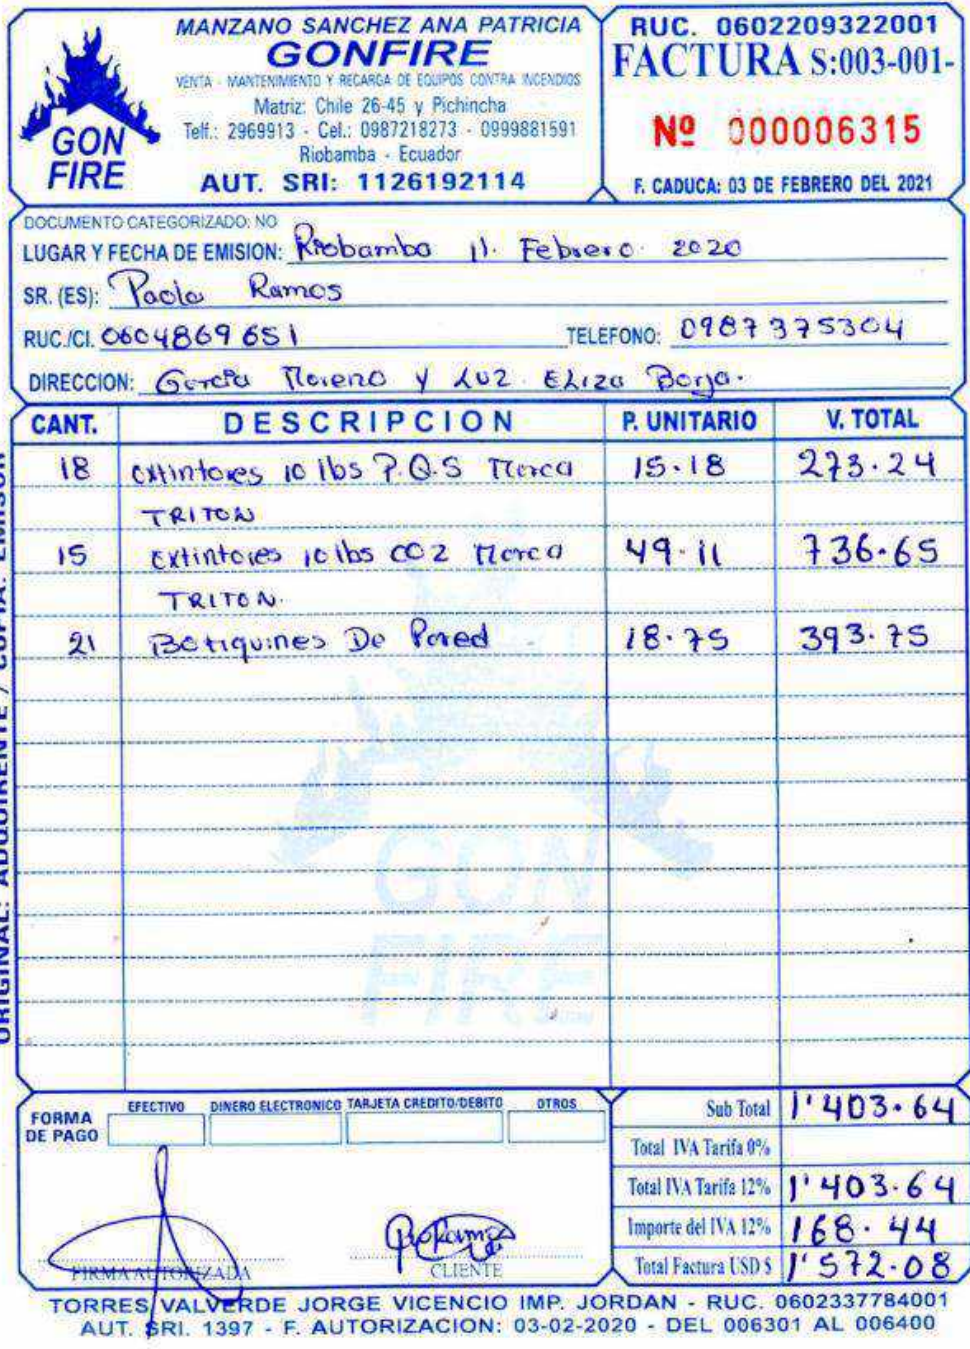 MANZANO SANCHEZ ANA PATRICIA
GONFIRE
VENTA - MANTENIMIENTO Y RECARGA DE EQUIPOS CONTRA INCENDIOS
Matriz: Chile 26-45 y Pichincha
Telf.: 2969913 - Cel.: 0987218273 - 0999881591
Riobamba - Ecuador
AUT. SRI: 1126192114
GON
FIRE
RUC. 0602209322001
FACTURA S:003-001-
Nº 000006315
F. CADUCA: 03 DE FEBRERO DEL 2021
DOCUMENTO CATEGORIZADO: NO
LUGAR Y FECHA DE EMISION: Riobamba 11. Febrero. 2020
SR. (ES): Paola Ramos
RUC./CI. 0604869651 TELEFONO: 0987375304
DIRECCION: García Moreno y Luz Eliza Borja.
CANT. DESCRIPCION P. UNITARIO V. TOTAL
18 extintores 10 lbs P.Q.S Marca 15.18 273.24
TRITON
15 extintores 10 lbs CO2 Marca 49.11 736.65
TRITON.
21 Botiquines De Pared 18.75 393.75
GON
FIRE
ORIGINAL: ADQUIRENTE / COPIA: EMISOR
FORMA DE PAGO EFECTIVO DINERO ELECTRONICO TARJETA CREDITO/DEBITO OTROS
Sub Total 1'403.64
Total IVA Tarifa 0%
Total IVA Tarifa 12% 1'403.64
Importe del IVA 12% 168.44
Total Factura USD $ 1'572.08
FIRMA AUTORIZADA CLIENTE
TORRES VALVERDE JORGE VICENCIO IMP. JORDAN - RUC. 0602337784001
AUT. SRI. 1397 - F. AUTORIZACION: 03-02-2020 - DEL 006301 AL 006400